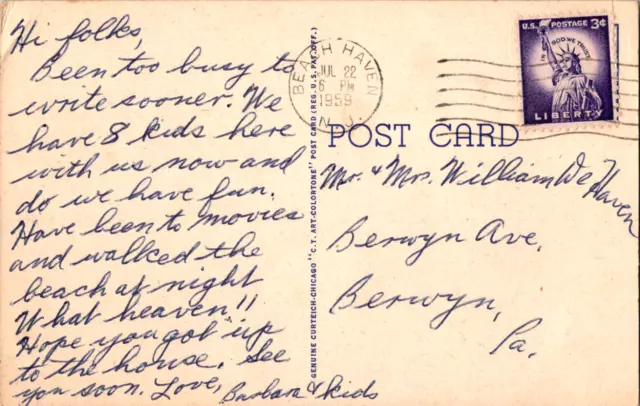 Hi folks,
Been too busy to
write sooner. We
have 8 kids here
with us now and
do we have fun.
Have been to movies
and walked the
beach at night
What heaven!!
Hope you got up
to the house. See
you soon. Love,
Barbara & kids
GENUINE CURTEICH-CHICAGO "C.T. ART-COLORTONE" POST CARD (REG. U.S. PAT. OFF.)
BEACH HAVEN
JUL 22
6 PM
1959
N.J.
U.S. POSTAGE 3¢
IN GOD WE TRUST
LIBERTY
POST CARD
Mr. & Mrs. William De Haven
Berwyn Ave.
Berwyn,
Pa.